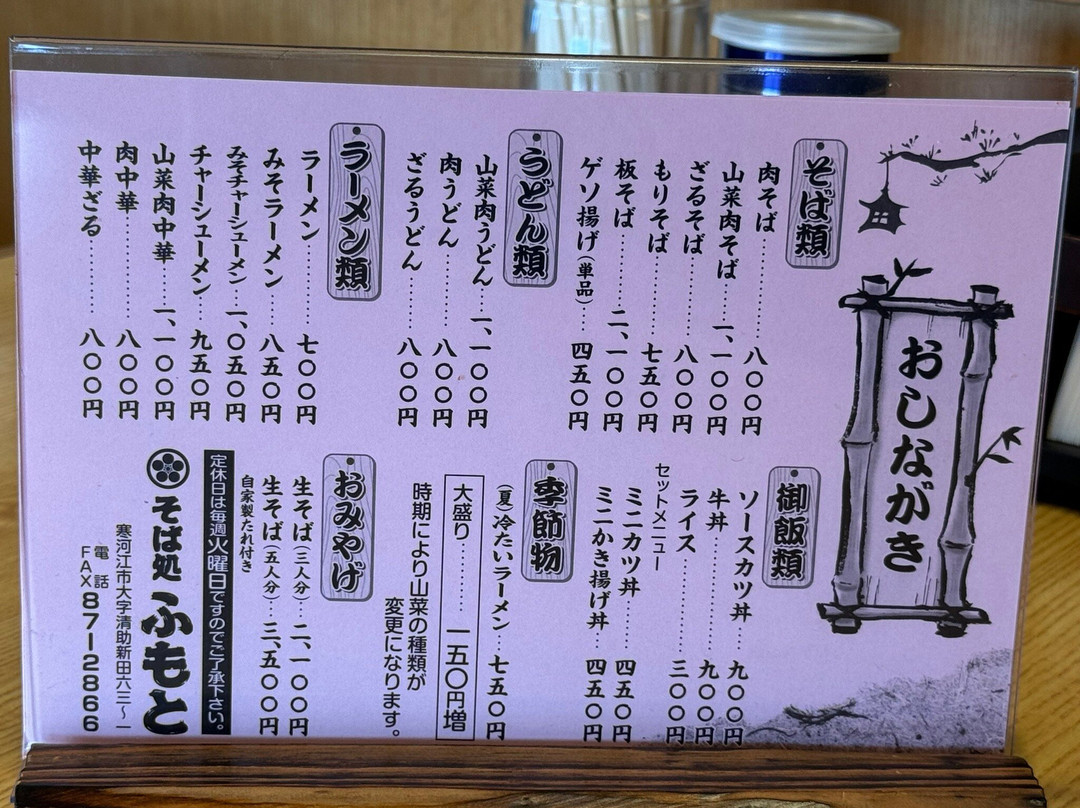 おしながき
そば類
肉そば……………八〇〇円
山菜肉そば…一、一〇〇円
ざるそば…………八〇〇円
もりそば…………七五〇円
板そば………二、一〇〇円
ゲソ揚げ(単品)…四五〇円
うどん類
山菜肉うどん…一、一〇〇円
肉うどん…………八〇〇円
ざるうどん………八〇〇円
ラーメン類
ラーメン…………七〇〇円
みそラーメン……八五〇円
みそチャーシューメン…一、〇五〇円
チャーシューメン…九五〇円
山菜肉中華…一、一〇〇円
肉中華……………八〇〇円
中華ざる…………八〇〇円
御飯類
ソースカツ丼……九〇〇円
牛丼………………九〇〇円
ライス……………三〇〇円
セットメニュー
ミニカツ丼………四五〇円
ミニかき揚げ丼…四五〇円
季節物
(夏)冷たいラーメン…七五〇円
大盛り………一五〇円増
時期により山菜の種類が
変更になります。
おみやげ
生そば(三人分)…二、一〇〇円
生そば(五人分)…三、五〇〇円
自家製たれ付き
定休日は毎週火曜日ですのでご了承下さい。
そば処 ふもと
寒河江市大字清助新田六三〜一
電話
FAX 87-2866